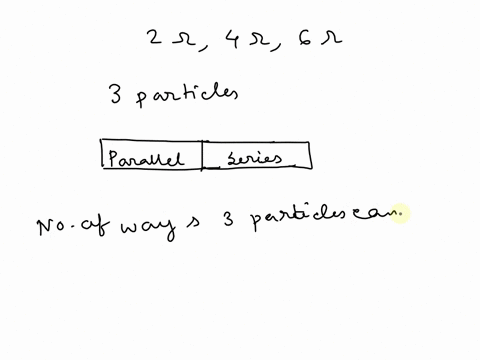 2 Ω, 4 Ω, 6 Ω
3 particles
Parallel Series
No. of ways 3 particles can.